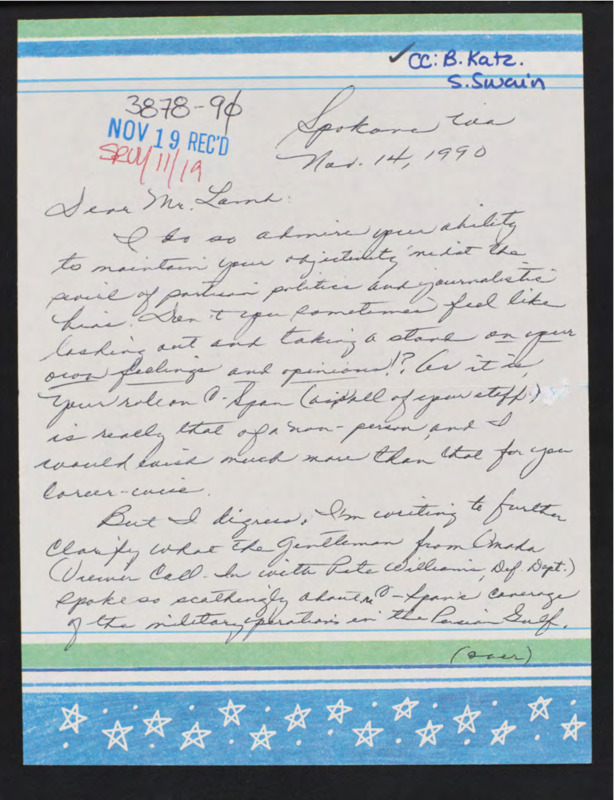 ✓ CC: B. Katz.
S. Swain
3878-90
NOV 19 REC'D
11/19
Spokane Wa
Nov. 14, 1990
Dear Mr. Lamb:
I do so admire your ability
to maintain your objectivity midst the
swirl of partisan politics and journalistic
bias. Don't you sometimes feel like
lashing out and taking a stand on your
own feelings and opinions!? As it is,
your role on C-Span (as all of your staff)
is really that of a non-person, and I
would wish much more than that for you
career-wise.
But I digress. I'm writing to further
clarify what the gentleman from Omaha
(Viewer Call-In with Pete Williams, Def. Dept.)
spoke so scathingly about re C-Span's coverage
of the military operations in the Persian Gulf.
(over)